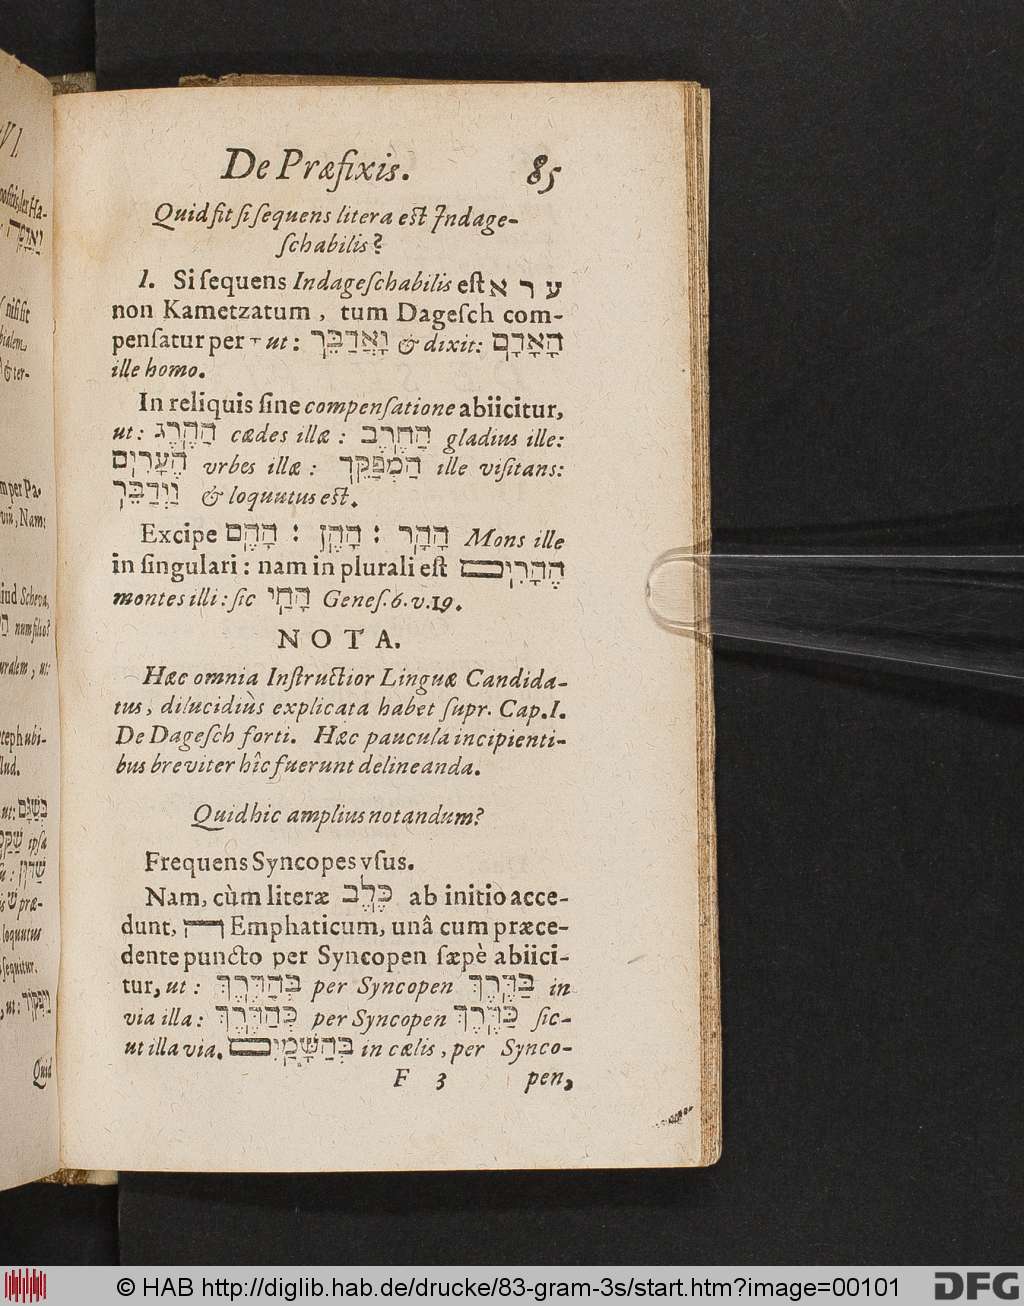 De Præfixis. 85
Quid fit ſi ſequens litera eſt Indage-
ſchabilis?
1. Si ſequens Indageſchabilis eſt א ר ע
non Kametzatum, tum Dageſch com-
penſatur per ָ ut: וָאֲדַבֵּר & dixit: הָאָדָם
ille homo.
In reliquis ſine compenſatione abiicitur,
ut: הַהֶרֶג cædes illæ: הַחֶרֶב gladius ille:
הֶעָרִים vrbes illæ: הַמְפַקֵּר ille viſitans:
וַיְדַבֵּר & loquutus eſt.
Excipe הָהֶם : הָהֶן : הָהָר Mons ille
in ſingulari: nam in plurali eſt הֶהָרִים
montes illi: ſic הָחַי Geneſ. 6. v. 19.
NOTA.
Hæc omnia Inſtructior Linguæ Candida-
tus, dilucidiùs explicata habet ſupr. Cap. I.
De Dageſch forti. Hæc paucula incipienti-
bus breviter hîc fuerunt delineanda.
Quid hic amplius notandum?
Frequens Syncopes vſus.
Nam, cùm literæ כֶּלֶב ab initio acce-
dunt, ה Emphaticum, unâ cum præce-
dente puncto per Syncopen ſæpè abiici-
tur, ut: בְּהַדֶּרֶךְ per Syncopen בַּדֶּרֶךְ in
via illa: כְּהַדֶּרֶךְ per Syncopen כַּדֶּרֶךְ ſic-
ut illa via. בְּהַשָּׁמַיִם in cælis, per Synco-
F 3 pen,
© HAB http://diglib.hab.de/drucke/83-gram-3s/start.htm?image=00101
DFG